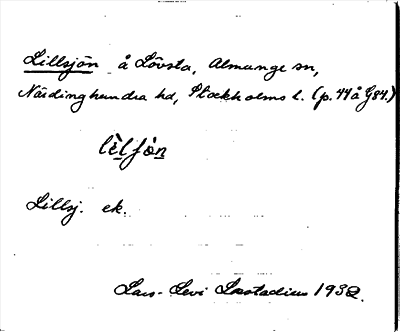 Lillsjön å Lövsta, Almunge sn,
Närdinghundra hd, Stockholms l. (p. 44 å G84.)
lilfön
Lillsj. ek.
Lars-Levi Læstadius 1932.